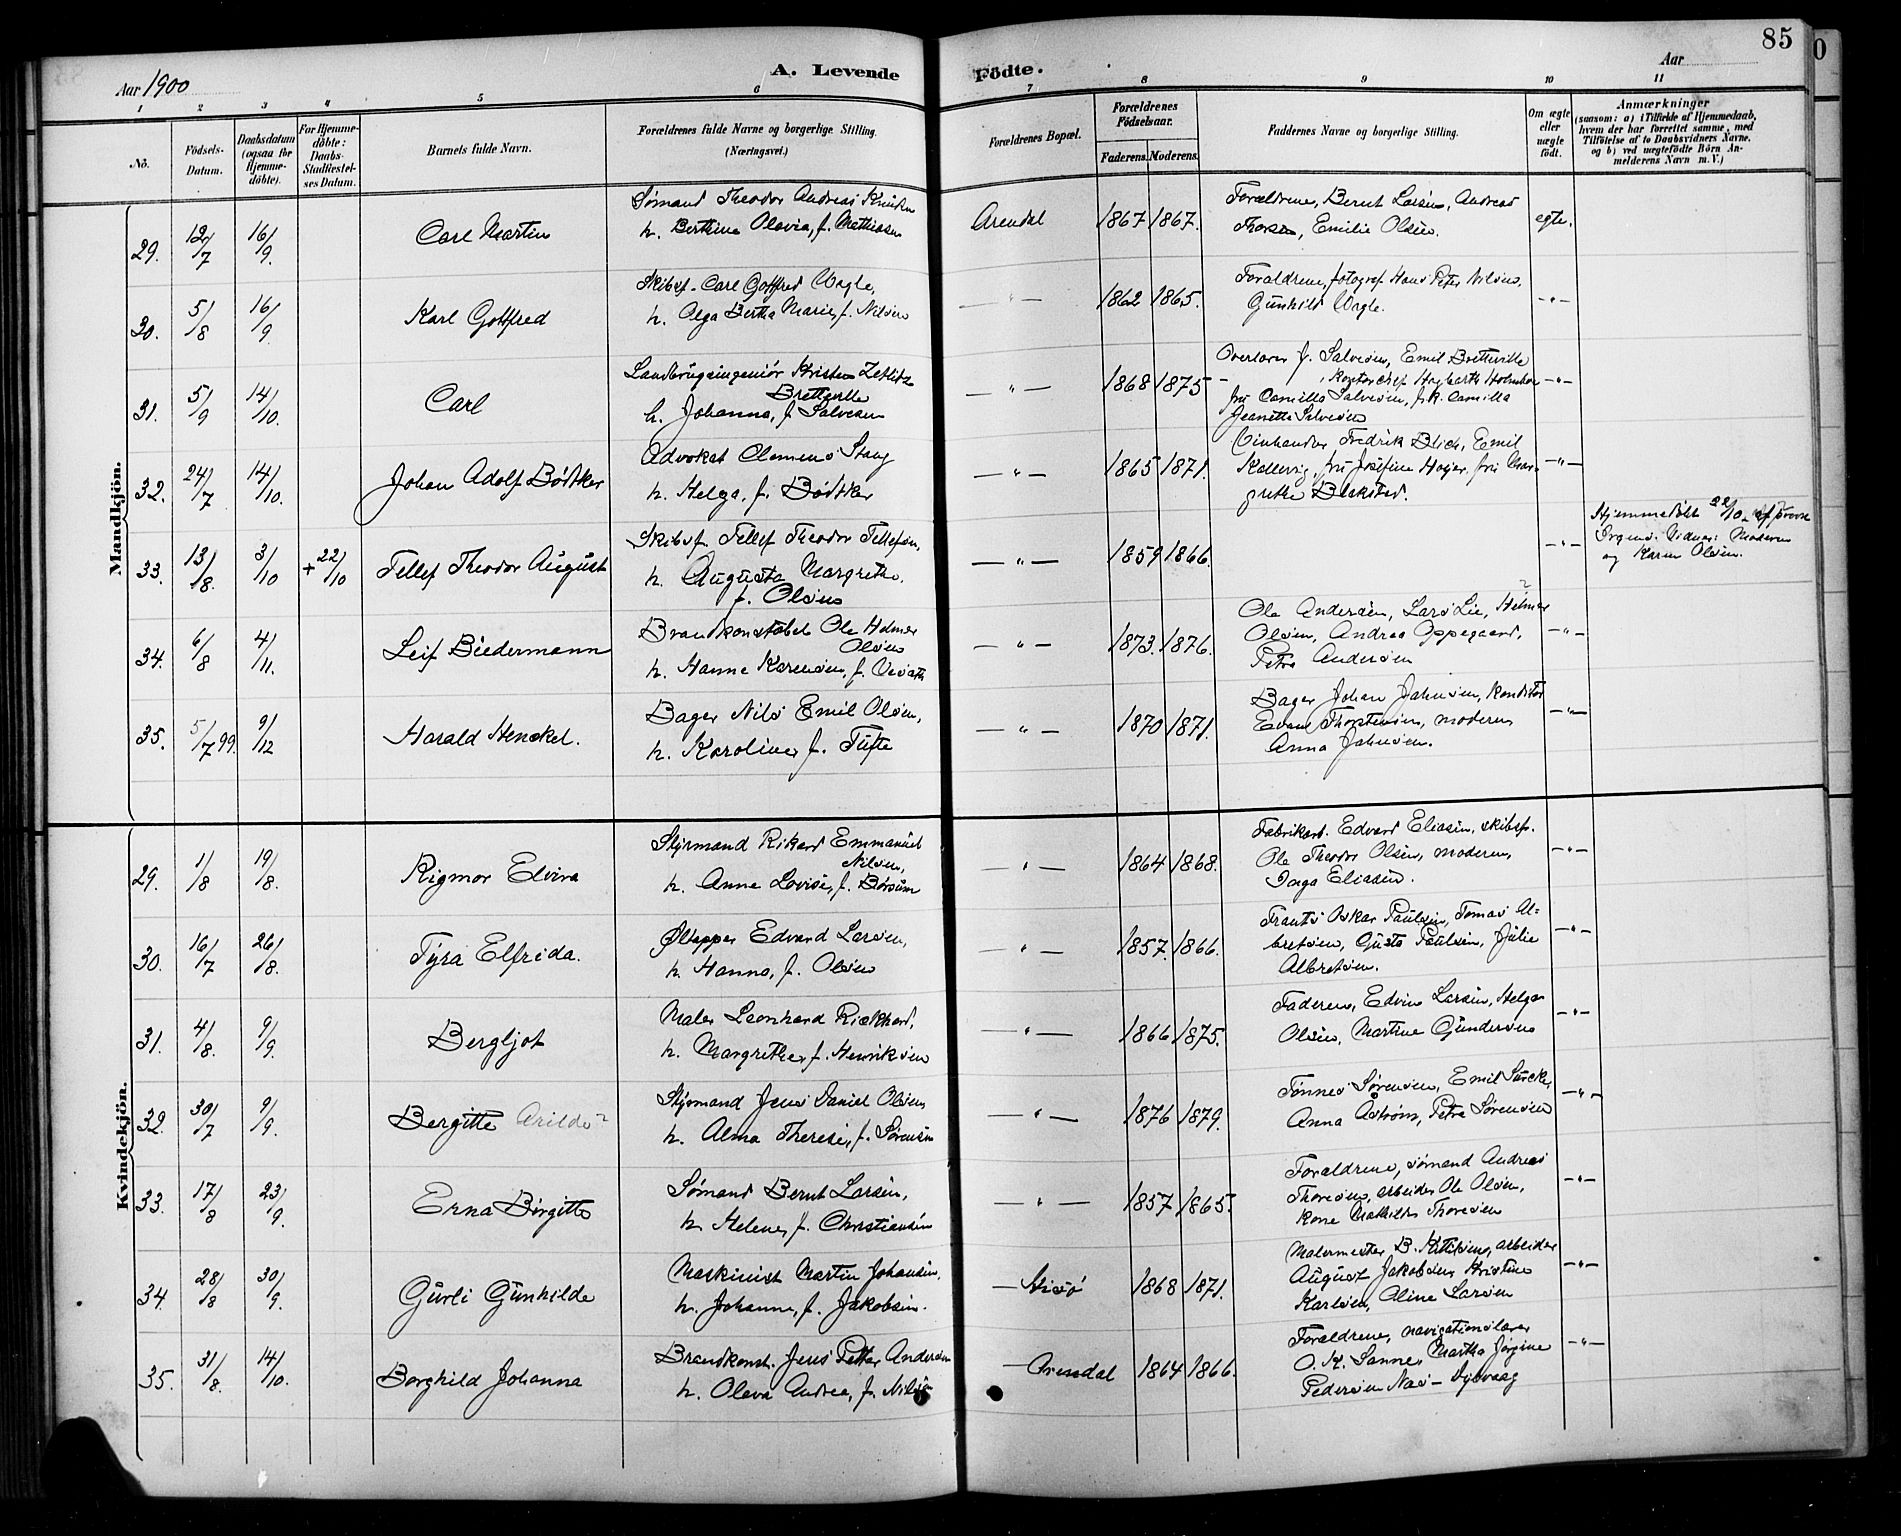 85
Aar 1900
A. Levende
Födte.
Aar
1 2 3 4 5 6 7 8 9 10 11
Nō.
Födsels-
Datum.
Daabsdatum
(ogsaa for
Hjemme-
döbte).
For Hjemme-
döbte:
Daabs-
Stadfæstel-
ses Datum.
Barnets fulde Navn.
Forældrenes fulde Navne og borgerlige Stilling.
(Næringsvei.)
Forældrenes Bopæl.
Forældrenes
Födselsaar.
Faderens. Moderens.
Faddernes Navne og borgerlige Stilling.
Om ægte
eller
uægte
födt.
Anmærkninger
(saasom: a) i Tilfælde af Hjemmedaab,
hvem der har forrettet samme, med
Tilföielse af to Daabsvidners Navne.
og b) ved uægtefödte Börn An-
melderens Navn m. V.)
Mandkjön.
29. 12/7 16/9. Carl Martin
Sømand Theodor Andreas Knudsen
h. Berthine Olavia, f. Mathisen
Arendal 1867 1867.
Forældrene, Bernt Larsen, Andreas
Thorsen, Emilie Olsen. egte.
30. 5/8 16/9 Karl Gottfred
Skibsf. Carl Gottfred Wagle,
h. Olga Bertha Marie, f. Nilsen
— " — 1862 1865.
Forældrene, fotograf Hans Peter Nilsen,
Gunhild Wagle. — " —
31. 5/9 14/10. Carl
Landbrugsingeniør Kristen Zetlitz
Bretteville
h. Johanna, f. Salvesen
— " — 1868 1875
Overlærer f. Salvesen, Emil Bretteville
, kontorchef Hagbarth
fru Camilla Salvesen, frk. Camilla
Jeanette Salvesen — " —
32. 24/7 14/10. Johan Adolf Bödtker
Advokat Clemens Stang
h. Helga, f. Bödtker
— " — 1865 1871.
Vinhandler Fredrik Blich, Emil
Kallevig, fru Josefine Høyer, fru Mar-
grethe Blakstad. — " —
33. 13/8. 3/10 + 22/10 Tellef Theodor August
Skibsf. Tellef Theodor Tellefsen,
h. Augusta Margrethe,
f. Olsen
— " — 1859 1866. — " —
Hjemmedöbt 22/10 af provst
Irgens. Vidner: Moderen
og Karen Olsen.
34. 6/8 4/11. Leif Biedermann
Brandkonstabel Ole Helmer
Olsen
h. Hanne Karensen, f.
— " — 1873. 1876.
?
Ole Andersen, Lars Lie, Helmer
Olsen, Andrea Oppegaard,
Petra Andersen — " —
35. 5/7 99. 9/12 Harald Henckel.
Bager Nils Emil Olsen,
h. Karoline, f. Tufte
— " — 1870 1871.
Bager Johan Jahnsen, konditor
Edvard Thorstensen, moderen,
Anna Jahnsen. — " —
Kvindekjön.
29. 1/8 19/8. Rigmor Elvira
Styrmand Rikard Emmanuel
Nilsen,
h. Anne Lovise, f. Børsum
— " — 1864 1868.
Fabrikant. Edvard Eliasen, skibsf.
Ole Theodor Olsen, moderen,
Inga Eliasen. — " —
30. 16/7 26/8. Tyra Elfrida.
Øltapper Edvard Larsen,
h. Hanna, f. Olsen
— " — 1857. 1866.
Frants Oskar Paulsen, Tomas Al=
bretsen, Gusta Paulsen, Julie
Albretsen. — " —
31. 4/8. 9/9. Bergljot
Maler Leonhard Rickhard,
h. Margrethe, f. Henriksen
— " — 1866 1875.
Faderen, Edvin Larsen, Helga
Olsen, Martine Gundersen — " —
32. 30/7 9/9. Bergitte Arilde?
Styrmand Jens Daniel Olsen
h. Alma Therese, f. Sørensen
— " — 1876 1879.
Tønnes Sørensen, Emil
Anna Åstrøm, Petra Sørensen — " —
33. 17/8 23/9. Erna Börgitte
Sømand Bernt Larsen,
h. Helene, f. Christiansen
— " — 1857 1865.
Forældrene, sømand Andreas
Thoresen, arbeider Ole Olsen,
kone Mathilde Thoresen — " —
34. 28/8 30/9. Gurli Gunhilde
Maskinist Martin Johansen,
h. Johanne, f. Jakobsen.
— Hisö 1868 1871.
Malermester B. Kittilsen, arbeider
August Jakobsen, Kristine
Karlsen, Oline Larsen — " —
35. 31/8. 14/10. Borghild Johanna
Brandkonst. Jens Petter Andersen
h. Olava Andrea, f. Nilsen
— Arendal 1864 1866.
Forældrene, navigationslærer
O. K. Sanne, Martha Jørgine
Pedersen Næs – Dybvaag — " —